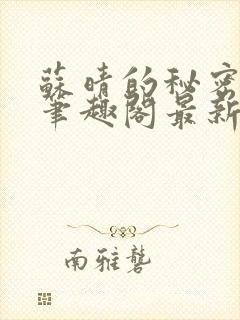 蘇晴的秘密
筆趣閣最新
南雅礱